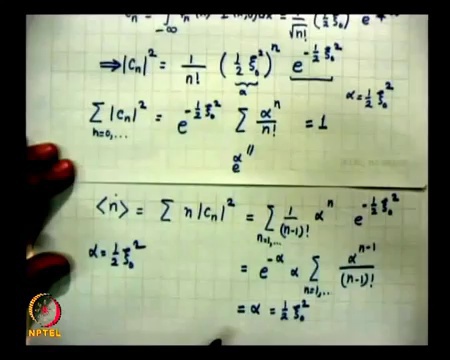 Cₙ = ∫₋∞ ... dx = 1/√n! (½ ξ₀²) e
⟹ |Cₙ|² = 1/n! (½ ξ₀²)ⁿ e^(-½ ξ₀²)
α
α = ½ ξ₀²
∑_(n=0,...) |Cₙ|² = e^(-½ ξ₀²) ∑ αⁿ/n! = 1
e^α
⟨n⟩ = ∑ n |Cₙ|² = ∑_(n=1,...) 1/(n-1)! αⁿ e^(-½ ξ₀²)
α = ½ ξ₀²
= e^(-α) α ∑_(n=1,...) α^(n-1)/(n-1)!
= α = ½ ξ₀²
NPTEL